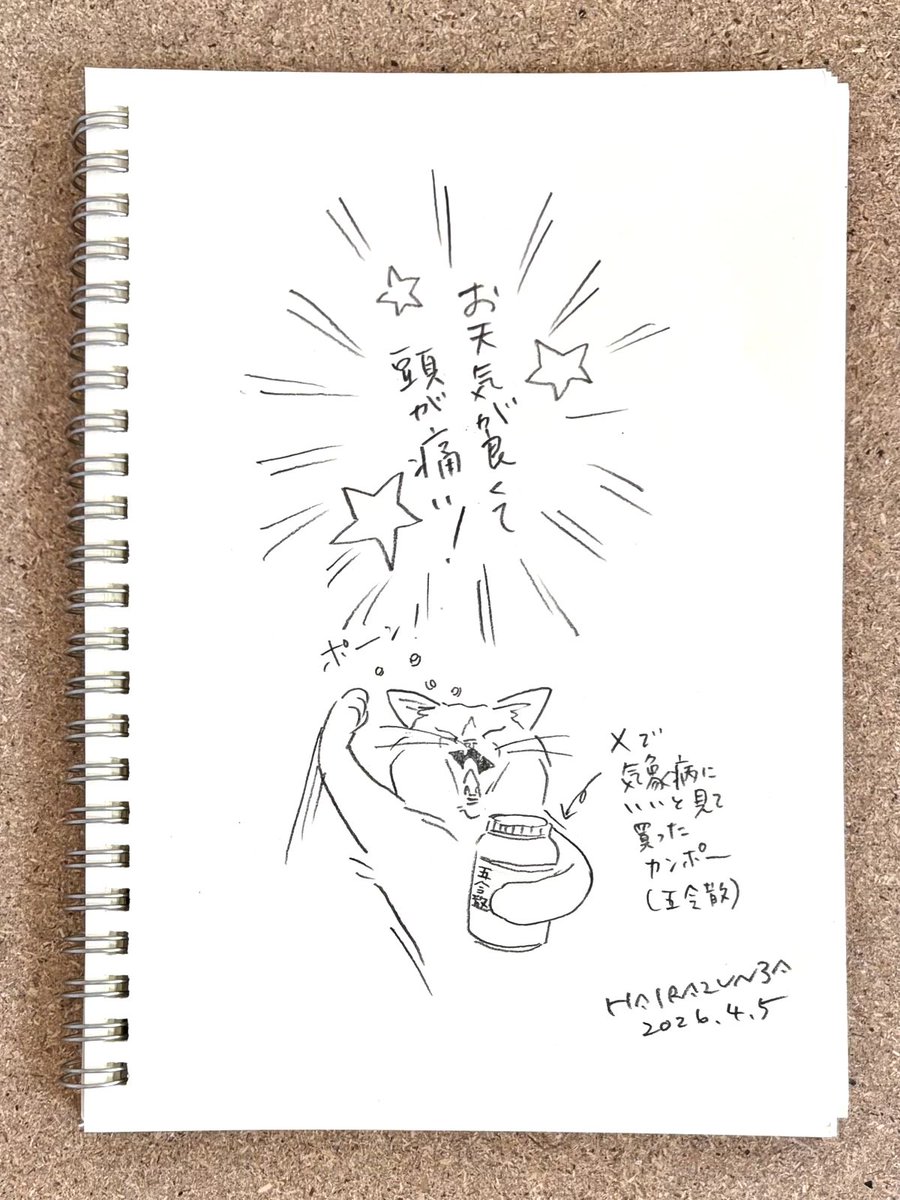 お天気が良くて
頭が痛い!
ポーン
Xで
気象病に
いいと見て
買った
カンポー
(五令散)
五令散
HAIRAZUNBA
2026.4.5